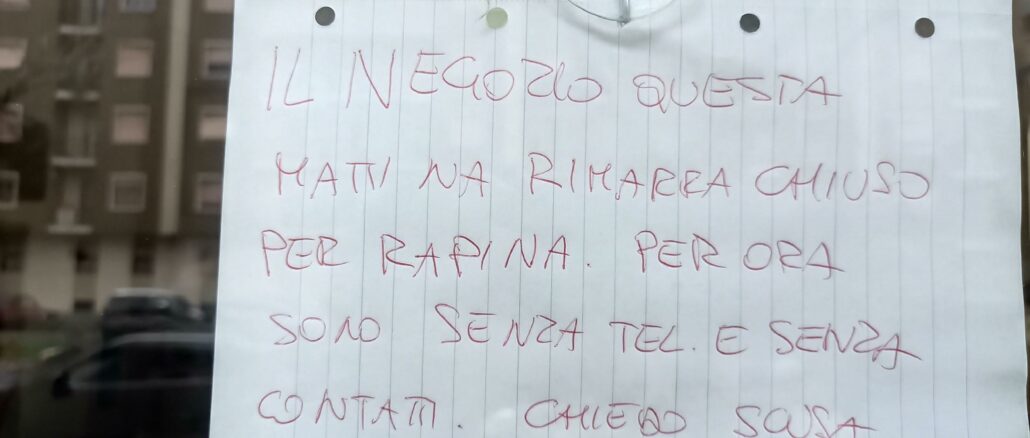 IL NEGOZIO QUESTA
MATTINA RIMARRA CHIUSO
PER RAPINA. PER ORA
SONO SENZA TEL. E SENZA
CONTATTI. CHIEDO SCUSA